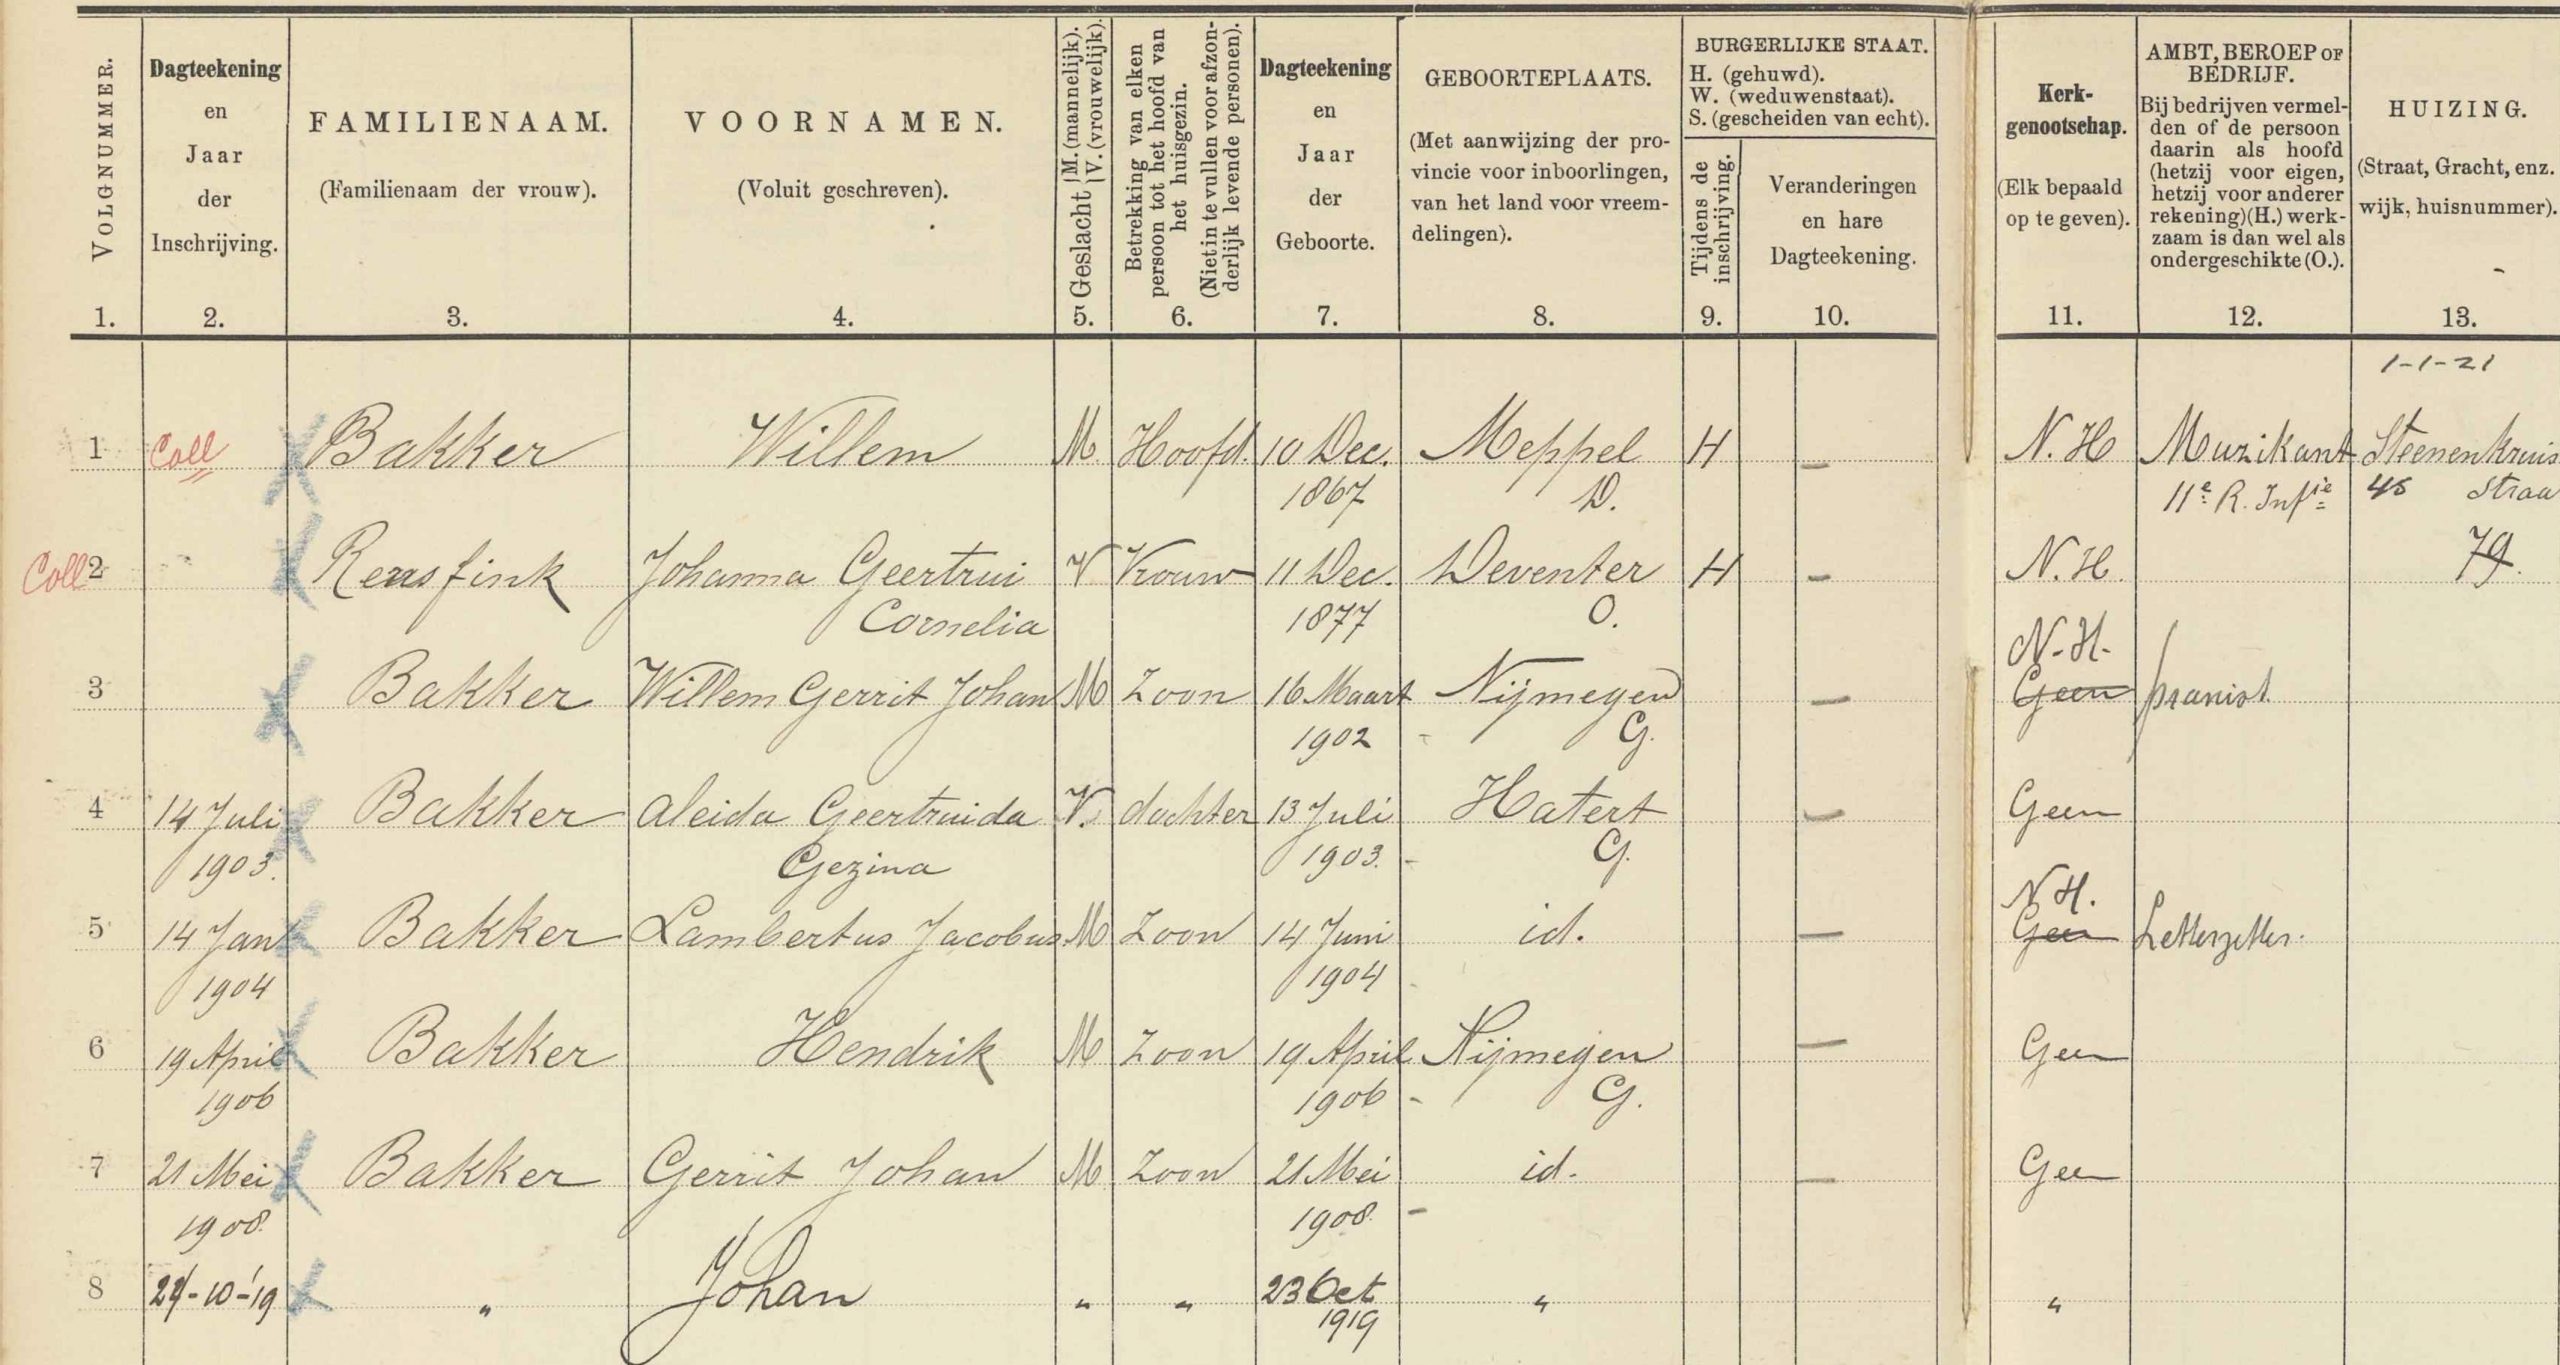 VOLGNUMMER.
1.
Dagteekening
en
Jaar
der
Inschrijving.
2.
FAMILIENAAM.
(Familienaam der vrouw).
3.
VOORNAMEN.
(Voluit geschreven).
4.
Geslacht
M. (mannelijk).
V. (vrouwelijk).
5.
Betrekking van elken
persoon tot het hoofd van
het huisgezin.
(Niet in te vullen voor afzon-
derlijk levende personen).
6.
Dagteekening
en
Jaar
der
Geboorte.
7.
GEBOORTEPLAATS.
(Met aanwijzing der pro-
vincie voor inboorlingen,
van het land voor vreem-
delingen).
8.
BURGERLIJKE STAAT.
H. (gehuwd).
W. (weduwenstaat).
S. (gescheiden van echt).
Tijdens de
inschrijving.
9.
Veranderingen
en hare
Dagteekening.
10.
Kerk-
genootschap.
(Elk bepaald
op te geven).
11.
AMBT, BEROEP OF
BEDRIJF.
Bij bedrijven vermel-
den of de persoon
daarin als hoofd
(hetzij voor eigen,
hetzij voor anderer
rekening)(H.) werk-
zaam is dan wel als
ondergeschikte (O.).
12.
HUIZING.
(Straat, Gracht, enz.
wijk, huisnummer).
13.
1-1-21
1 Coll Bakker Willem M. Hoofd. 10 Dec. Meppel H – N.H Muzikant Steenenkruis
1867 D. 11e R. Infie 45 Straa
Coll 2 Johanna Geertrui V Vrouw 11 Dec. Deventer H – N.H. 79.
Cornelia 1877 O.
N.H.
3 Bakker Willem Gerrit Johan M Zoon 16 Maart Nijmegen – Geen pianist
1902 G.
4 14 Juli Bakker Aleida Geertruida V. dochter 13 Juli Hatert – Geen
1903. Gezina 1903. G.
N.H.
5 14 Jan Bakker Lambertus Jacobus M Zoon 14 Juni id. – Geen Letterzetter.
1904 1904
6 19 April Bakker Hendrik M Zoon 19 April Nijmegen – Geen
1906 1906 G.
7 21 Mei Bakker Gerrit Johan M Zoon 21 Mei id. – Geen
1908. 1908.
8 24-10-'19 " Johan " " 23 Oct " "
1919